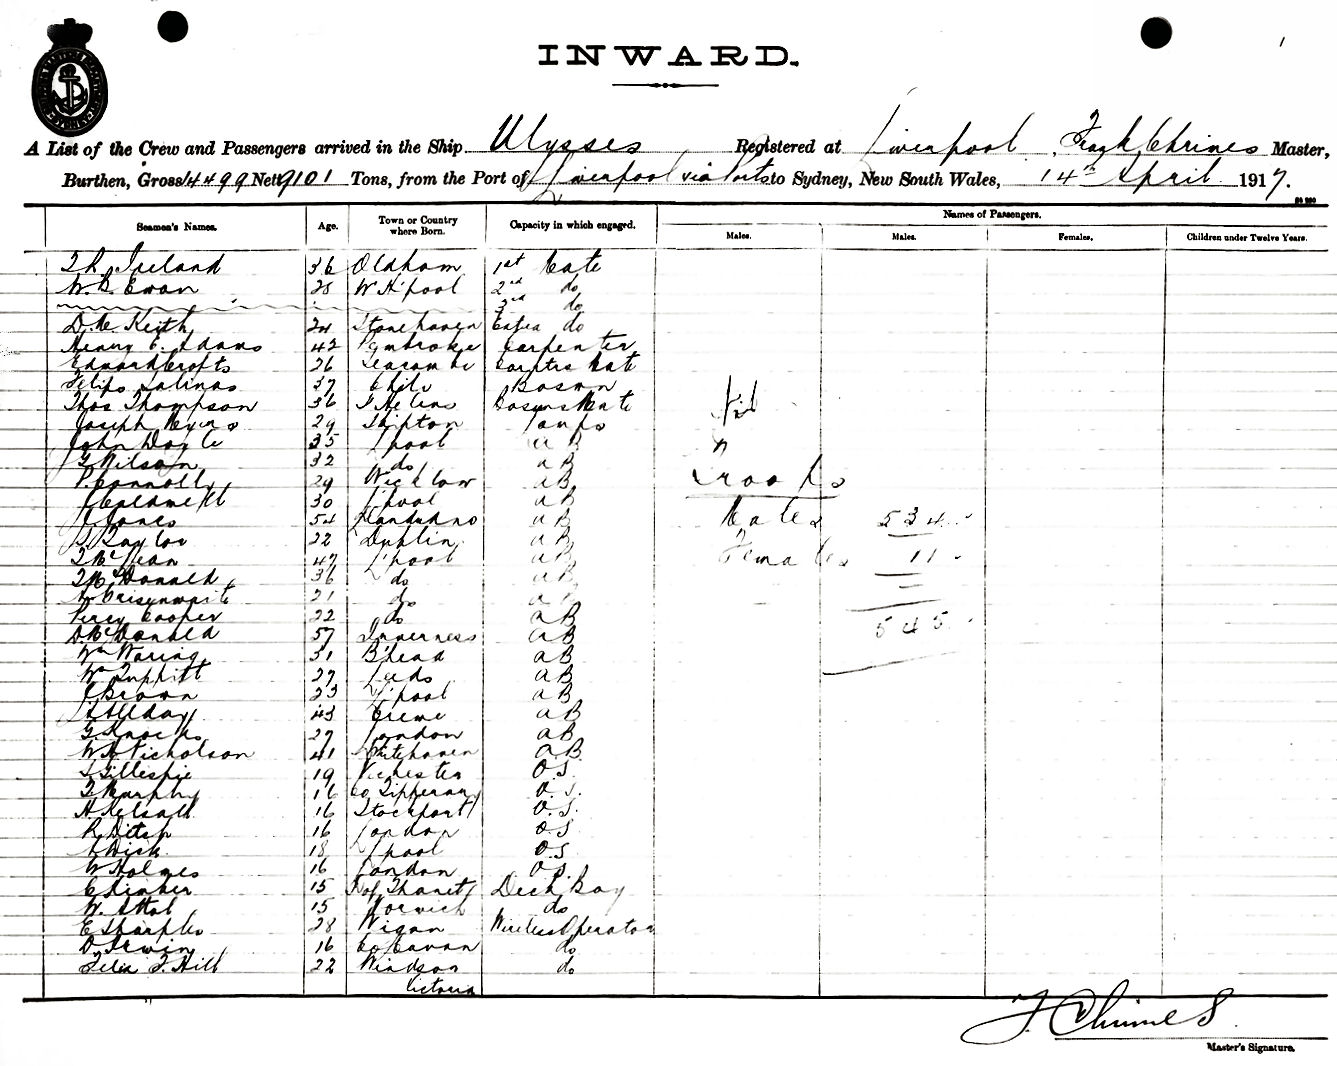 INWARD.
A List of the Crew and Passengers arrived in the Ship Ulysses Registered at Liverpool, Master,
Burthen, Gross 14499 Nett 9101 Tons, from the Port of Liverpool via Ports to Sydney, New South Wales, 14th April 1917.
Seamen's Names. Age. Town or Country where Born. Capacity in which engaged. Names of Passengers.
Males. Males. Females. Children under Twelve Years.
Ireland 36 Oldham 1st Mate
W. B. Ewan 28 W H'pool 2nd do
3rd do
D. M. Keith 24 Stonehaven Extra do
Henry C. Adams 42 Pembroke Carpenter
Edmard Crofts 26 Seacombe Carptrs Mate
Felipo Salinas 37 Chili Bosmn
Thos Thompson 36 St Helens Bosuns Mate
Joseph Myers 29 Skipton Lamps
John Doyle 35 L'pool A B
G Wilson 32 do A B
P. Connolly 29 Wicklow A B
30 L'pool A B
J Jones 54 Llandudno A B
Taylor 22 Dublin A B
T McLean 47 L'pool A B
T McDonald 36 do A B
21 do A B
Percy Cooper 22 do A B
D. McDonald 57 Inverness A B
Wm Waring 31 B'head A B
Wm Tuppitt 27 Leeds A B
J Brown 23 L'pool A B
43 Crewe A B
G. 27 London A B
W H Nicholson 41 Whitehaven A B
Gillespie 19 O.S.
T Murphy 16 Co Tipperary O.S.
H Kelsall 16 Stockport O.S.
R Ditch 16 London O.S.
Dick 18 L'pool O.S.
W Holmes 16 London O.S.
15 I of Thanet Deck Boy
W. 15 Norwich do
E Sharples 28 Wigan Wireless Operator
D. Irwin 16 Co Cavan do
Felix F. Hill 22 Windsor do
Victoria
Troops
Males 534
Females 11
545
F. Chrimes
Master's Signature.